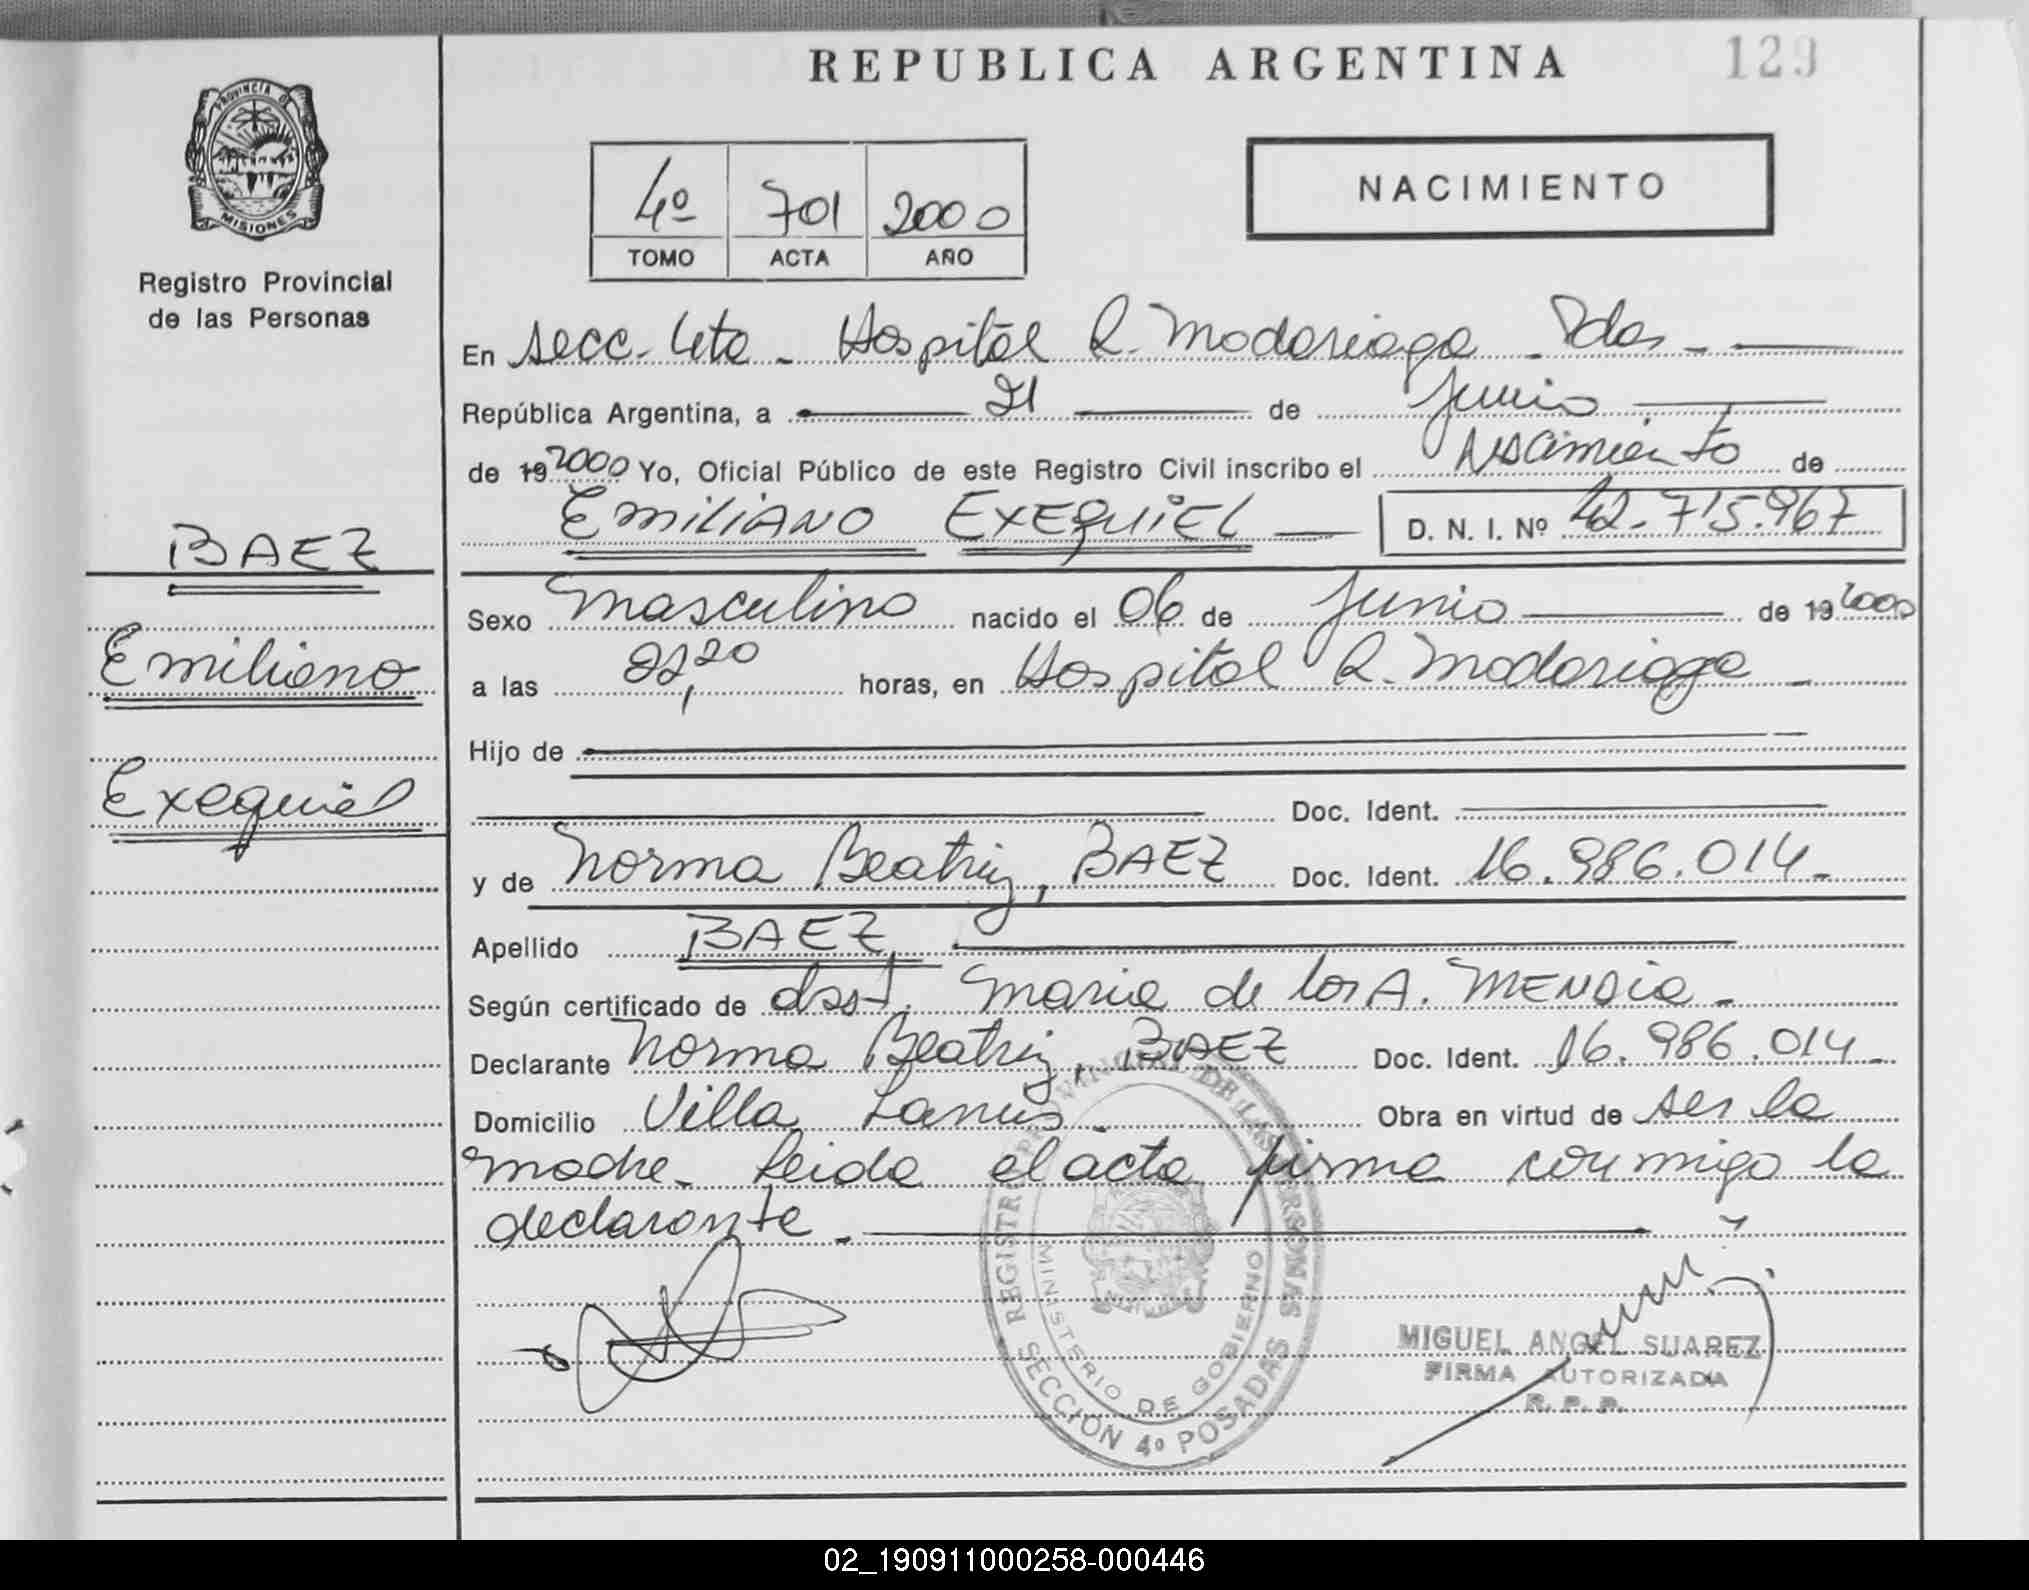 REPUBLICA ARGENTINA
129
PROVINCIA DE
MISIONES
Registro Provincial
de las Personas
4º 701 2000
TOMO ACTA AÑO
NACIMIENTO
En secc. 4ta - Hospital R. Madariaga - Pdas -
República Argentina, a 21 de Junio
de 19 2000 Yo, Oficial Público de este Registro Civil inscribo el Nacimiento de
EMILIANO EXEQUIEL D. N. I. Nº 42.715.967
BAEZ
Emiliano
Exequiel
Sexo Masculino nacido el 06 de Junio de 19 2000
a las 22,20 horas, en Hospital R. Madariaga -
Hijo de
Doc. Ident.
y de Norma Beatriz, BAEZ Doc. Ident. 16.986.014-
Apellido BAEZ
Según certificado de obst. Maria de los A. MENDIA -
Declarante Norma Beatriz, BAEZ Doc. Ident. 16.986.014-
Domicilio Villa Lanus - Obra en virtud de ser la
madre- Leida el acta firma conmigo la
declarante -
REGISTRO PROVINCIAL DE LAS PERSONAS
MINISTERIO DE GOBIERNO
SECCION 4º POSADAS
MIGUEL ANGEL SUAREZ
FIRMA AUTORIZADA
R. P. P.
02_190911000258-000446